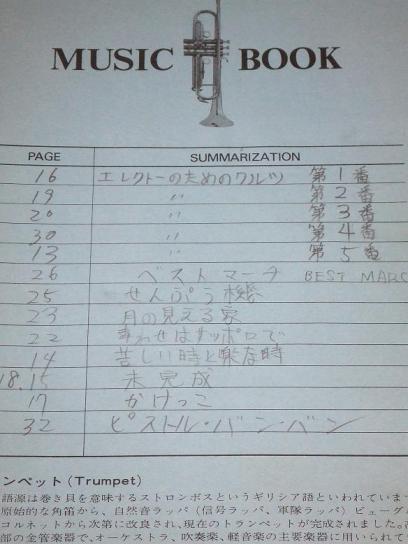 MUSIC BOOK
PAGE SUMMARIZATION
16 エレクトーのためのワルツ 第1番
19 〃 第2番
20 〃 第3番
30 〃 第4番
13 〃 第5番
26 ベストマーチ BEST MARC
25 せんぷう機
23 月の見える家
22 幸わせはサッポロで
14 苦しい時と楽な時
18.15 未完成
17 かけっこ
32 ピストル・バン・バン
ンペット(Trumpet)
語源は巻き貝を意味するストロンボスというギリシア語といわれていま
原始的な角笛から、自然音ラッパ(信号ラッパ、軍隊ラッパ)ビューグ
コルネットから次第に改良され、現在のトランペットが完成されました。
部の金管楽器で、オーケストラ、吹奏楽、軽音楽の主要楽器に用いられて